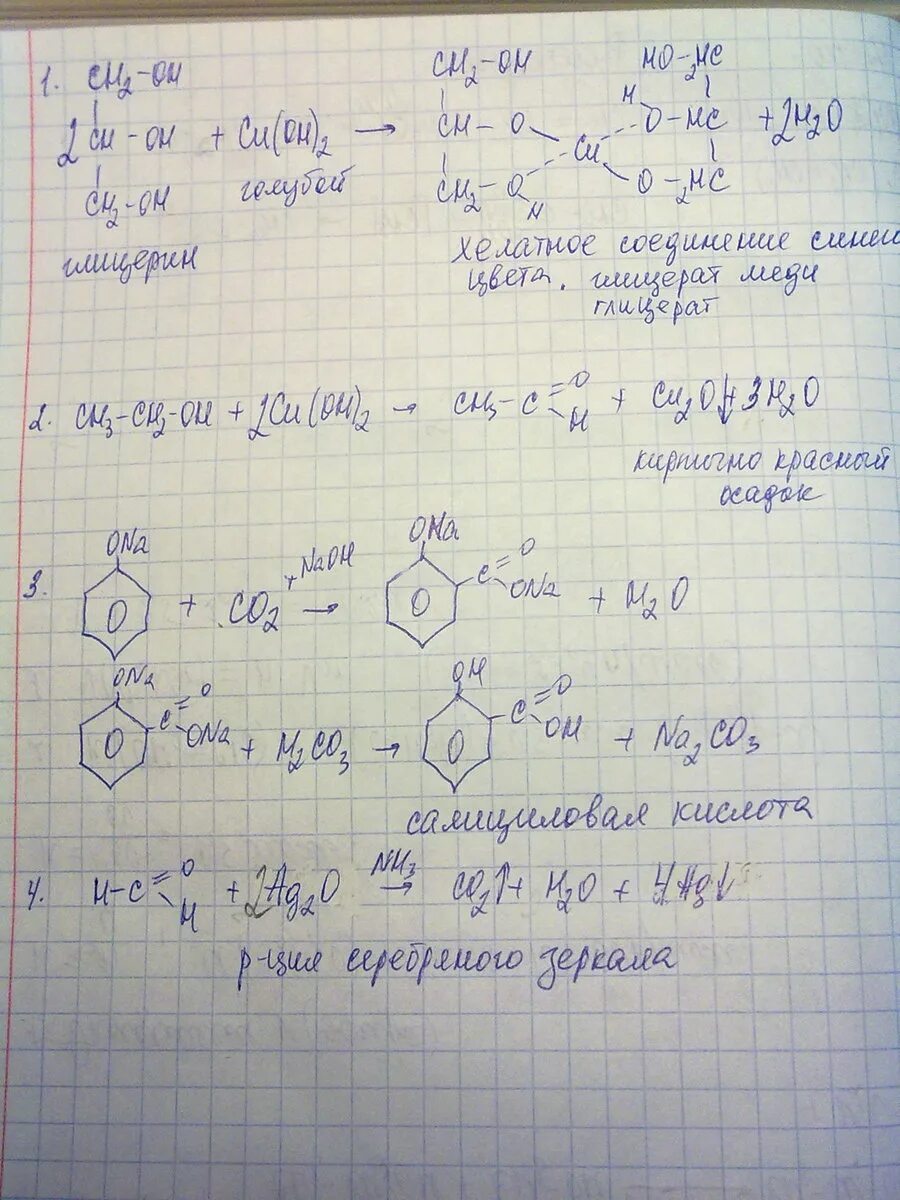 1. CH₂-OH CH₂-OH HO-₂HC
2 CH-OH + Cu(OH)₂ → CH-O Cu H O-HC + 2H₂O
CH₂-OH голубой CH₂-O H O-₂HC
глицерин хелатное соединение синего
цвета. глицерат меди
глицерат
2. CH₃-CH₂-OH + 2Cu(OH)₂ → CH₃-C=O H + Cu₂O↓+3H₂O
кирпично красный
осадок
3. ONa + CO₂ +NaOH → ONa C=O ONa + H₂O
ONa C=O ONa + H₂CO₃ → OH C=O OH + Na₂CO₃
салициловая кислота
4. H-C=O H + 2Ag₂O NH₃ → CO₂↑+ H₂O + 4Ag↓
р-ция серебряного зеркала